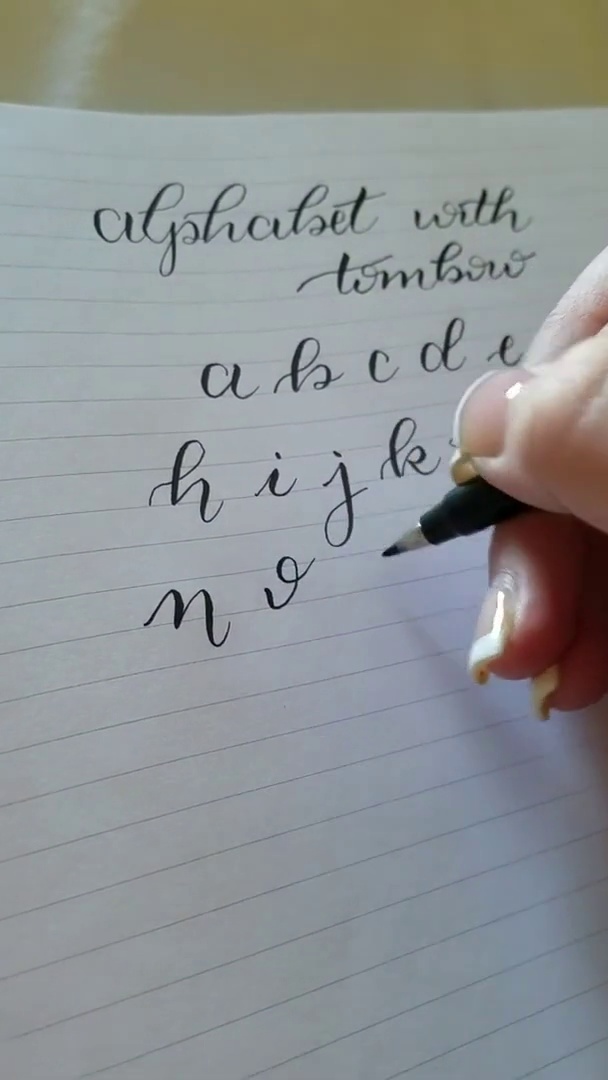 alphabet with
tombow
a b c d e
h i j k
n o